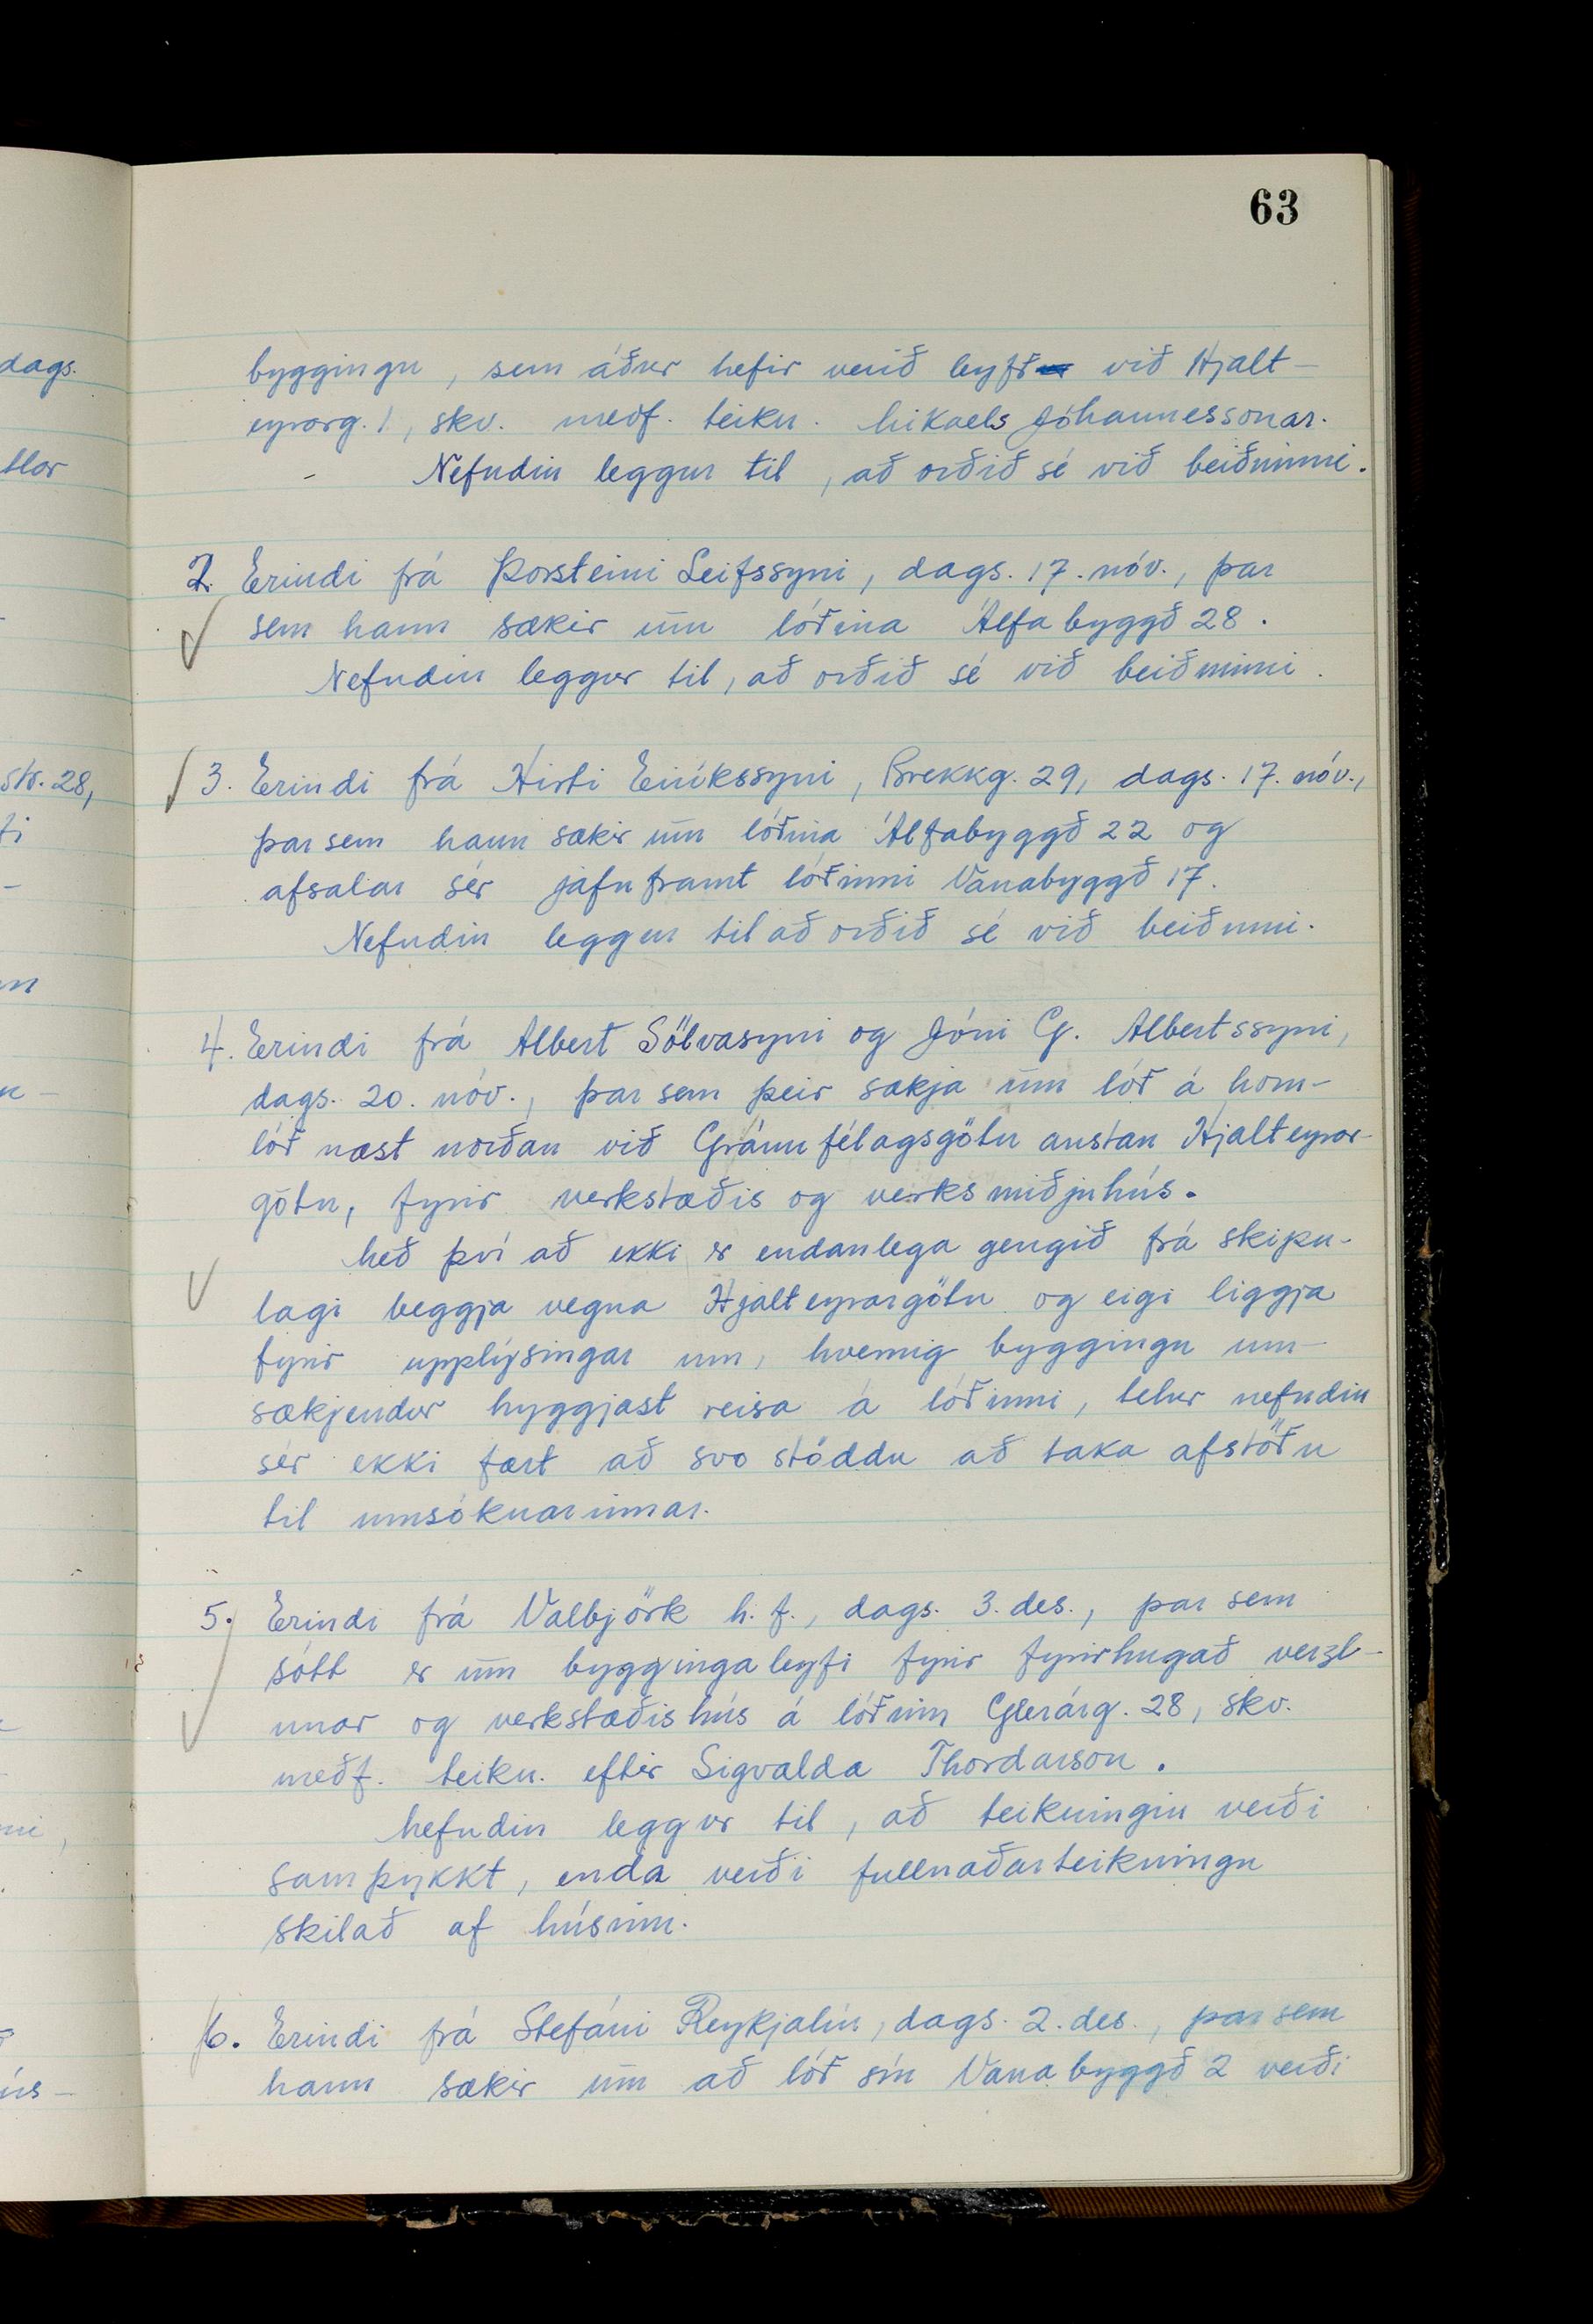 63
byggingu, sem áður hefir verið leyfð við Hjalt-
eyrarg. 1, skv. meðf. teikn. Mikaels Jóhannessonar.
- Nefndin leggur til, að orðið sé við beiðninni.
2. Erindi frá Þorsteini Leifssyni, dags. 17. nóv., þar
sem hann sækir um lóðina Álfabyggð 28.
Nefndin leggur til, að orðið sé við beiðninni.
3. Erindi frá Hirti Eiríkssyni, Brekkg. 29, dags. 17. nóv.,
þar sem hann sækir um lóðina Álfabyggð 22 og
afsalar sér jafnframt lóðinni Vanabyggð 17.
Nefndin leggur til að orðið sé við beiðnni.
4. Erindi frá Albert Sölvasyni og Jóni G. Albertssyni,
dags. 20. nóv., þar sem þeir sækja um lóð á horn-
lóð næst norðan við Gránufélagsgötu austan Hjalteyrar-
götu, fyrir verkstæðis og verksmiðjuhús.
Með því að ekki er endanlega gengið frá skipu-
lagi beggja vegna Hjalteyrargötu og eigi liggja
fyrir upplýsingar um, hvernig byggingu um-
sækjendur hyggjast reisa á lóðinni, telur nefndin
sér ekki fært að svo stöddu að taka afstöðu
til umsóknarinnar.
5. Erindi frá Valbjörk h.f., dags. 3. des., þar sem
sótt er um byggingaleyfi fyrir fyrirhugað verzl-
unar og verkstæðishús á lóðinni Glerárg. 28, skv.
meðf. teikn. eftir Sigvalda Thordarson.
Nefndin leggur til, að teikningin verði
samþykkt, enda verði fullnaðarteikningu
skilað af húsinu.
6. Erindi frá Stefáni Reykjalín, dags. 2. des., þar sem
hann sækir um að lóð sín Vanabyggð 2 verði
dags.
str. 28,